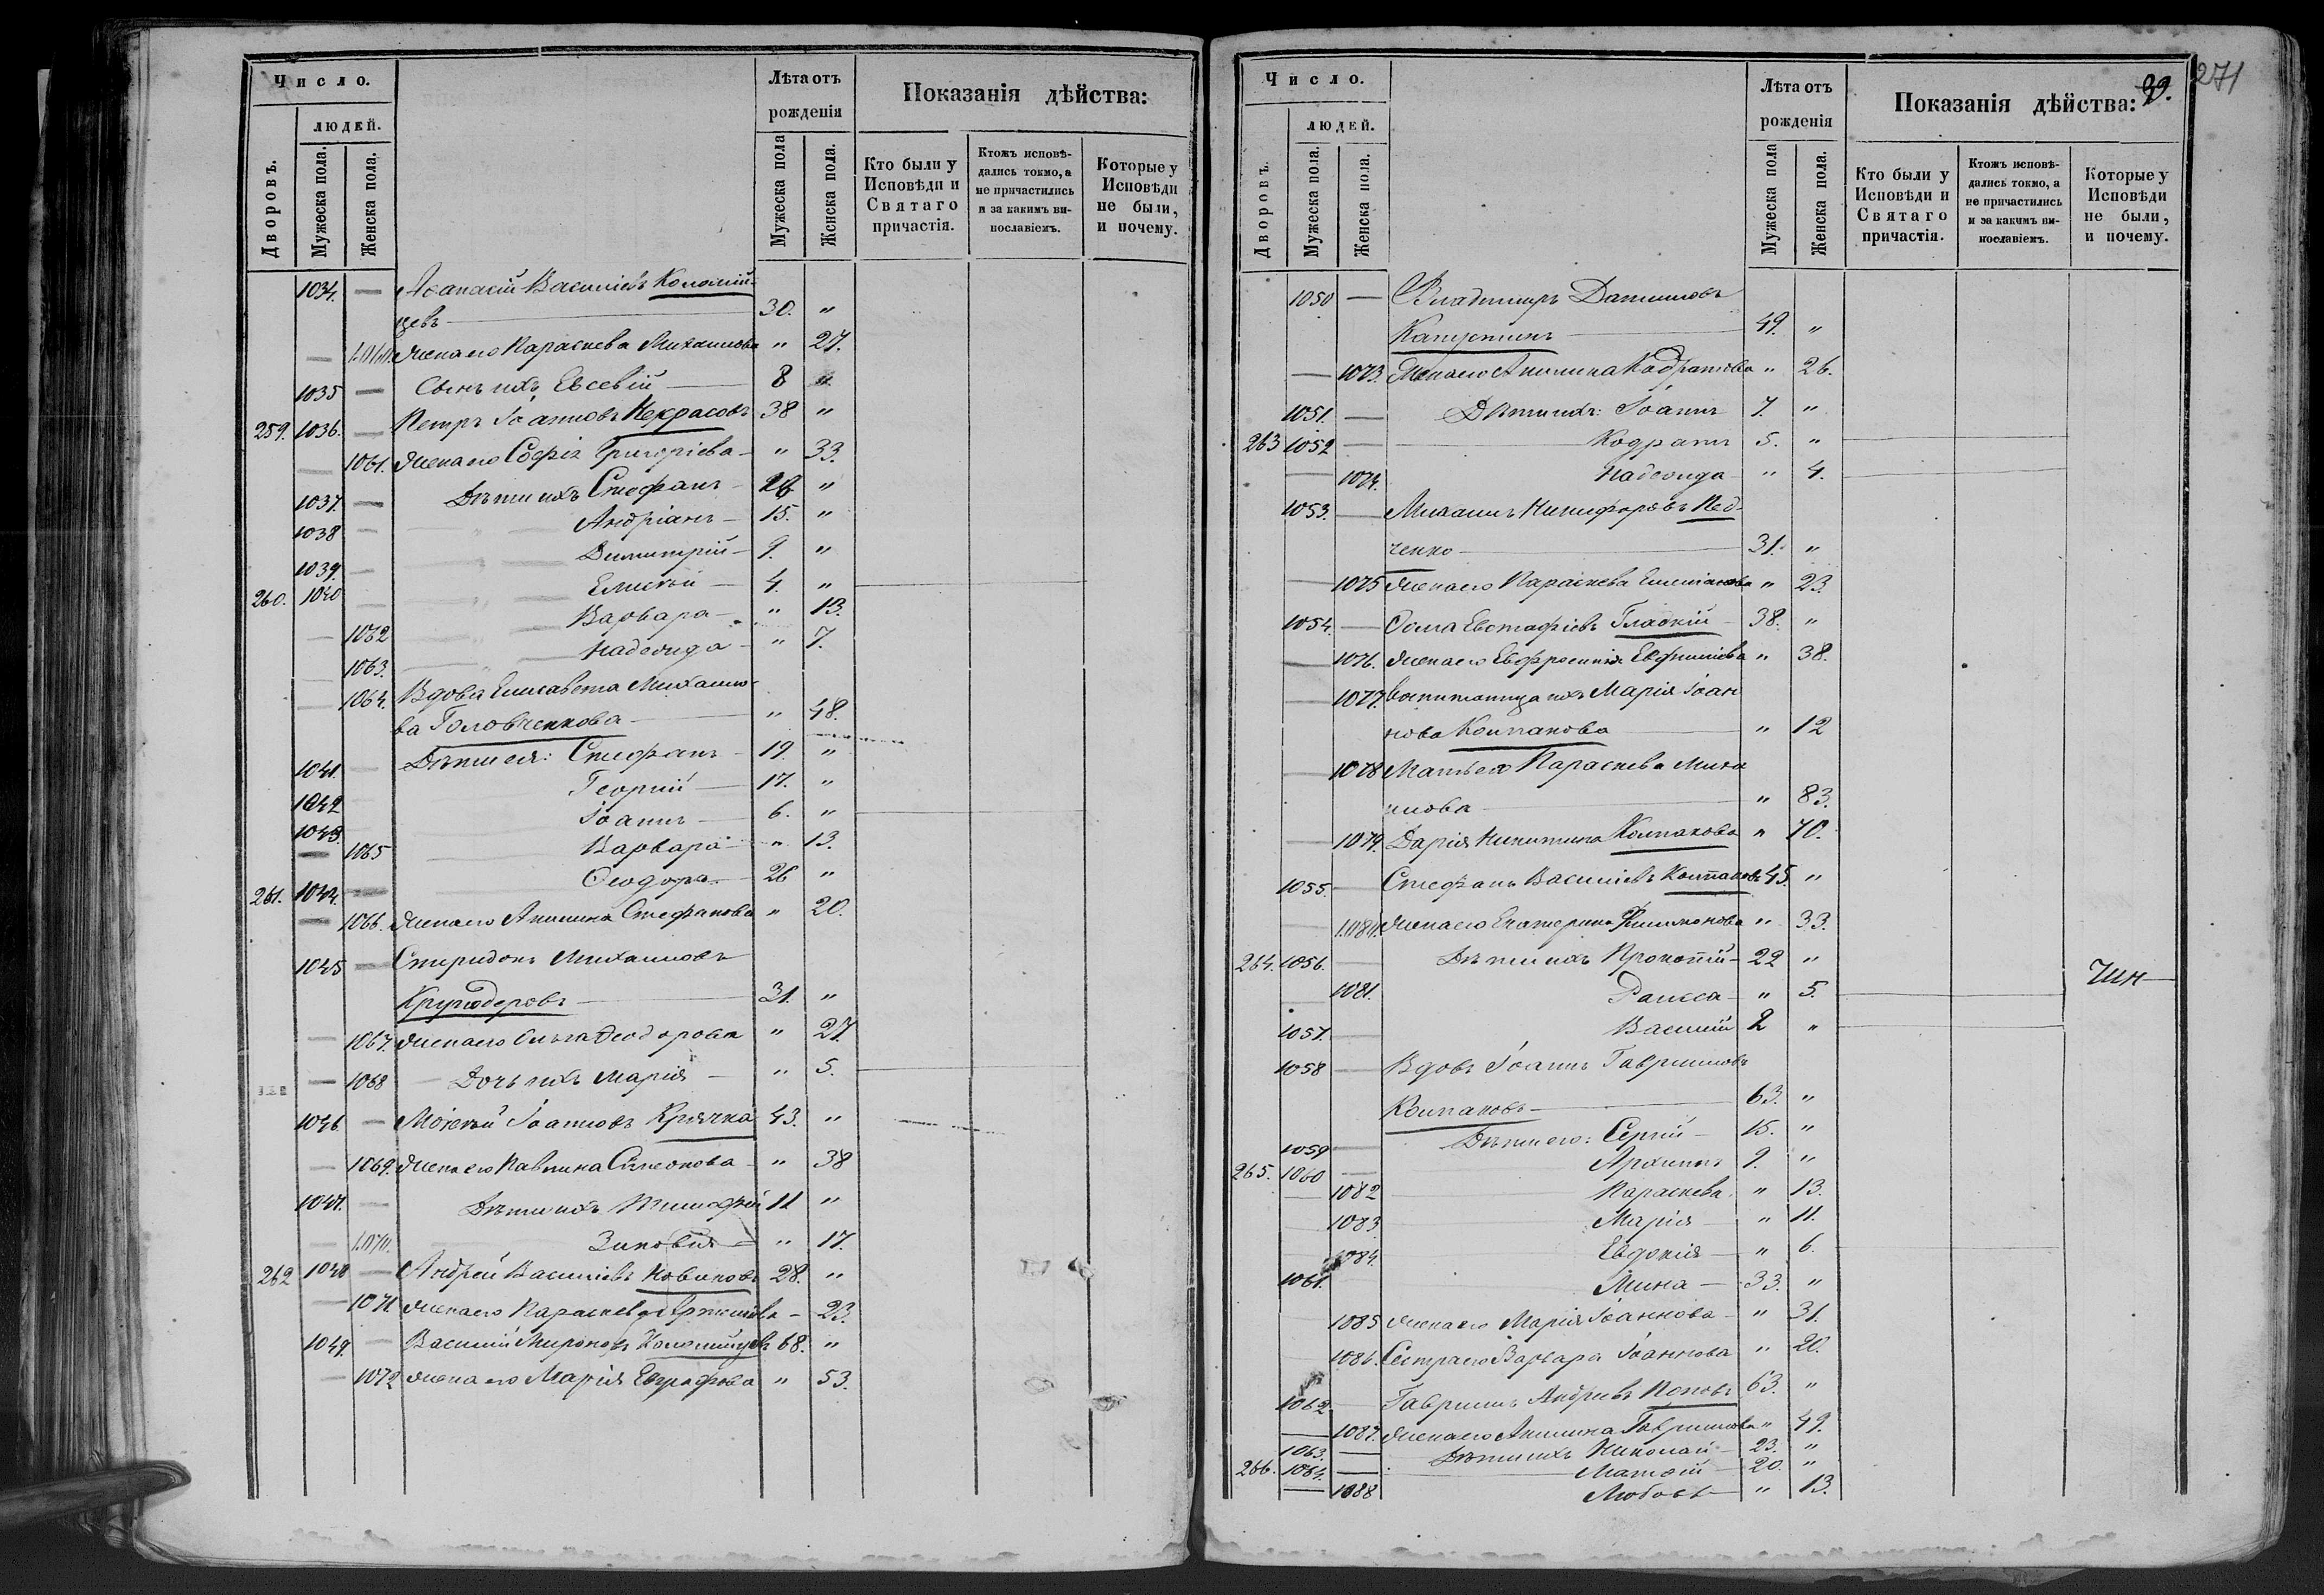 Число.
Лѣта отъ рожденія
Показанія дѣйства:
людей.
Дворовъ.
Мужеска пола.
Женска пола.
Мужеска пола
Женска пола.
Кто были у Исповѣди и Святаго причастія.
Ктожъ исповѣдались токмо, а не причастились и за какимъ винословіемъ.
Которые у Исповѣди не были, и почему.
1034. — Аѳанасій Васильевъ Коломій-
цевъ — 30. "
— 1060. Жена его Параскева Михаилова " 27.
1035 — Сынъ ихъ Евсевій — 8 "
259. 1036. — Петръ Іоанновъ Некрасовъ 38 "
— 1061. Жена его Софія Григоріева — " 33.
1037. — Дѣти ихъ Стефанъ — "
1038 — Андріанъ — 15. "
1039. — Димитрій — 9. "
260. 1040 — Елисей — 4. "
— 1062 Варвара — " 13.
— 1063. Надежда — " 7.
— 1064. Вдова Елисавета Михаило-
ва Головченкова — " 48.
1041. — Дѣти ея: Стефанъ — 19. "
1042 — Георгій — 17. "
1043. — Іоаннъ — 6. "
— 1065 Варвара — " 13.
261. 1044. — Ѳеодоръ — 26 "
— 1066. Жена его Акилина Стефанова " 20.
1045 — Спиридонъ Михаиловъ
— 31. "
— 1067. Жена его Ольга Ѳеодорова " 27
— 1068 Дочь ихъ Марія — " 5.
1046 — Моисей Іоанновъ Крячка 43. "
— 1069. Жена его Павлина Симеонова — " 38
1047. — Дѣти ихъ Тимофей 11 "
— 1070. Зиновія — " 17.
262 1048 — Андрей Васильевъ Новиковъ 28. "
— 1071 Жена его Параскева — 23.
1049. — Василій Мироновъ Коломійцевъ 68. "
— 1072 Жена его Марія Евграфова " 53.
Число.
Лѣта отъ рожденія
Показанія дѣйства:
39.
271
людей.
Дворовъ.
Мужеска пола.
Женска пола.
Мужеска пола
Женска пола.
Кто были у Исповѣди и Святаго причастія.
Ктожъ исповѣдались токмо, а не причастились и за какимъ винословіемъ.
Которые у Исповѣди не были, и почему.
1050 — Владимиръ Даниловъ
Капустинъ — 49. "
— 1073. Жена его Акилина Кодратова " 26.
1051. — Дѣти ихъ: Іоаннъ 7. "
263 1052 — Кодратъ 5. "
— 1074. Надежда " 4.
1053. — Михаилъ Никифоровъ Ред-
ченко — 31. "
— 1075 Жена его Параскева " 23.
1054. — Ѳома Евстафіевъ Гладкій — 38. "
— 1076. Жена его Евфросинія Евфиміева " 38.
— 1077. Воспитанница ихъ Марія Іоан
нова Колпакова — " 12
— 1078 Мать его Параскева Миха
илова — " 83.
— 1079. Дарія Никитина Колпакова " 70.
1055. — Стефанъ Васильевъ Колпаковъ 45. "
1080. Жена его Екатерина Филимонова " 33.
264. 1056. — Дѣти ихъ Прокопій — 22 "
— 1081. Раисса — " 5.
1057. — Василій 2 "
1058 — Вдовъ Іоаннъ Гавриловъ
Колпаковъ — 63. "
1059 — Дѣти его: Сергій — 15. "
265. 1060 — Архипъ 9. "
— 1082 Параскева " 13.
1083 Марія — " 11.
1084. Евдокія — " 6.
1061. Мина — 33. "
1085 Жена его Марія Іоаннова — " 31.
1086. Сестра его Варвара Іоаннова " 20.
1062 — Гавріилъ Андреевъ Поповъ 63. "
— 1087. Жена его Акилина Гаврилова " 49.
1063. — Дѣти ихъ Николай — 23. "
266. 1064. — Матѳій — 20. "
— 1088 Любовь — " 13.